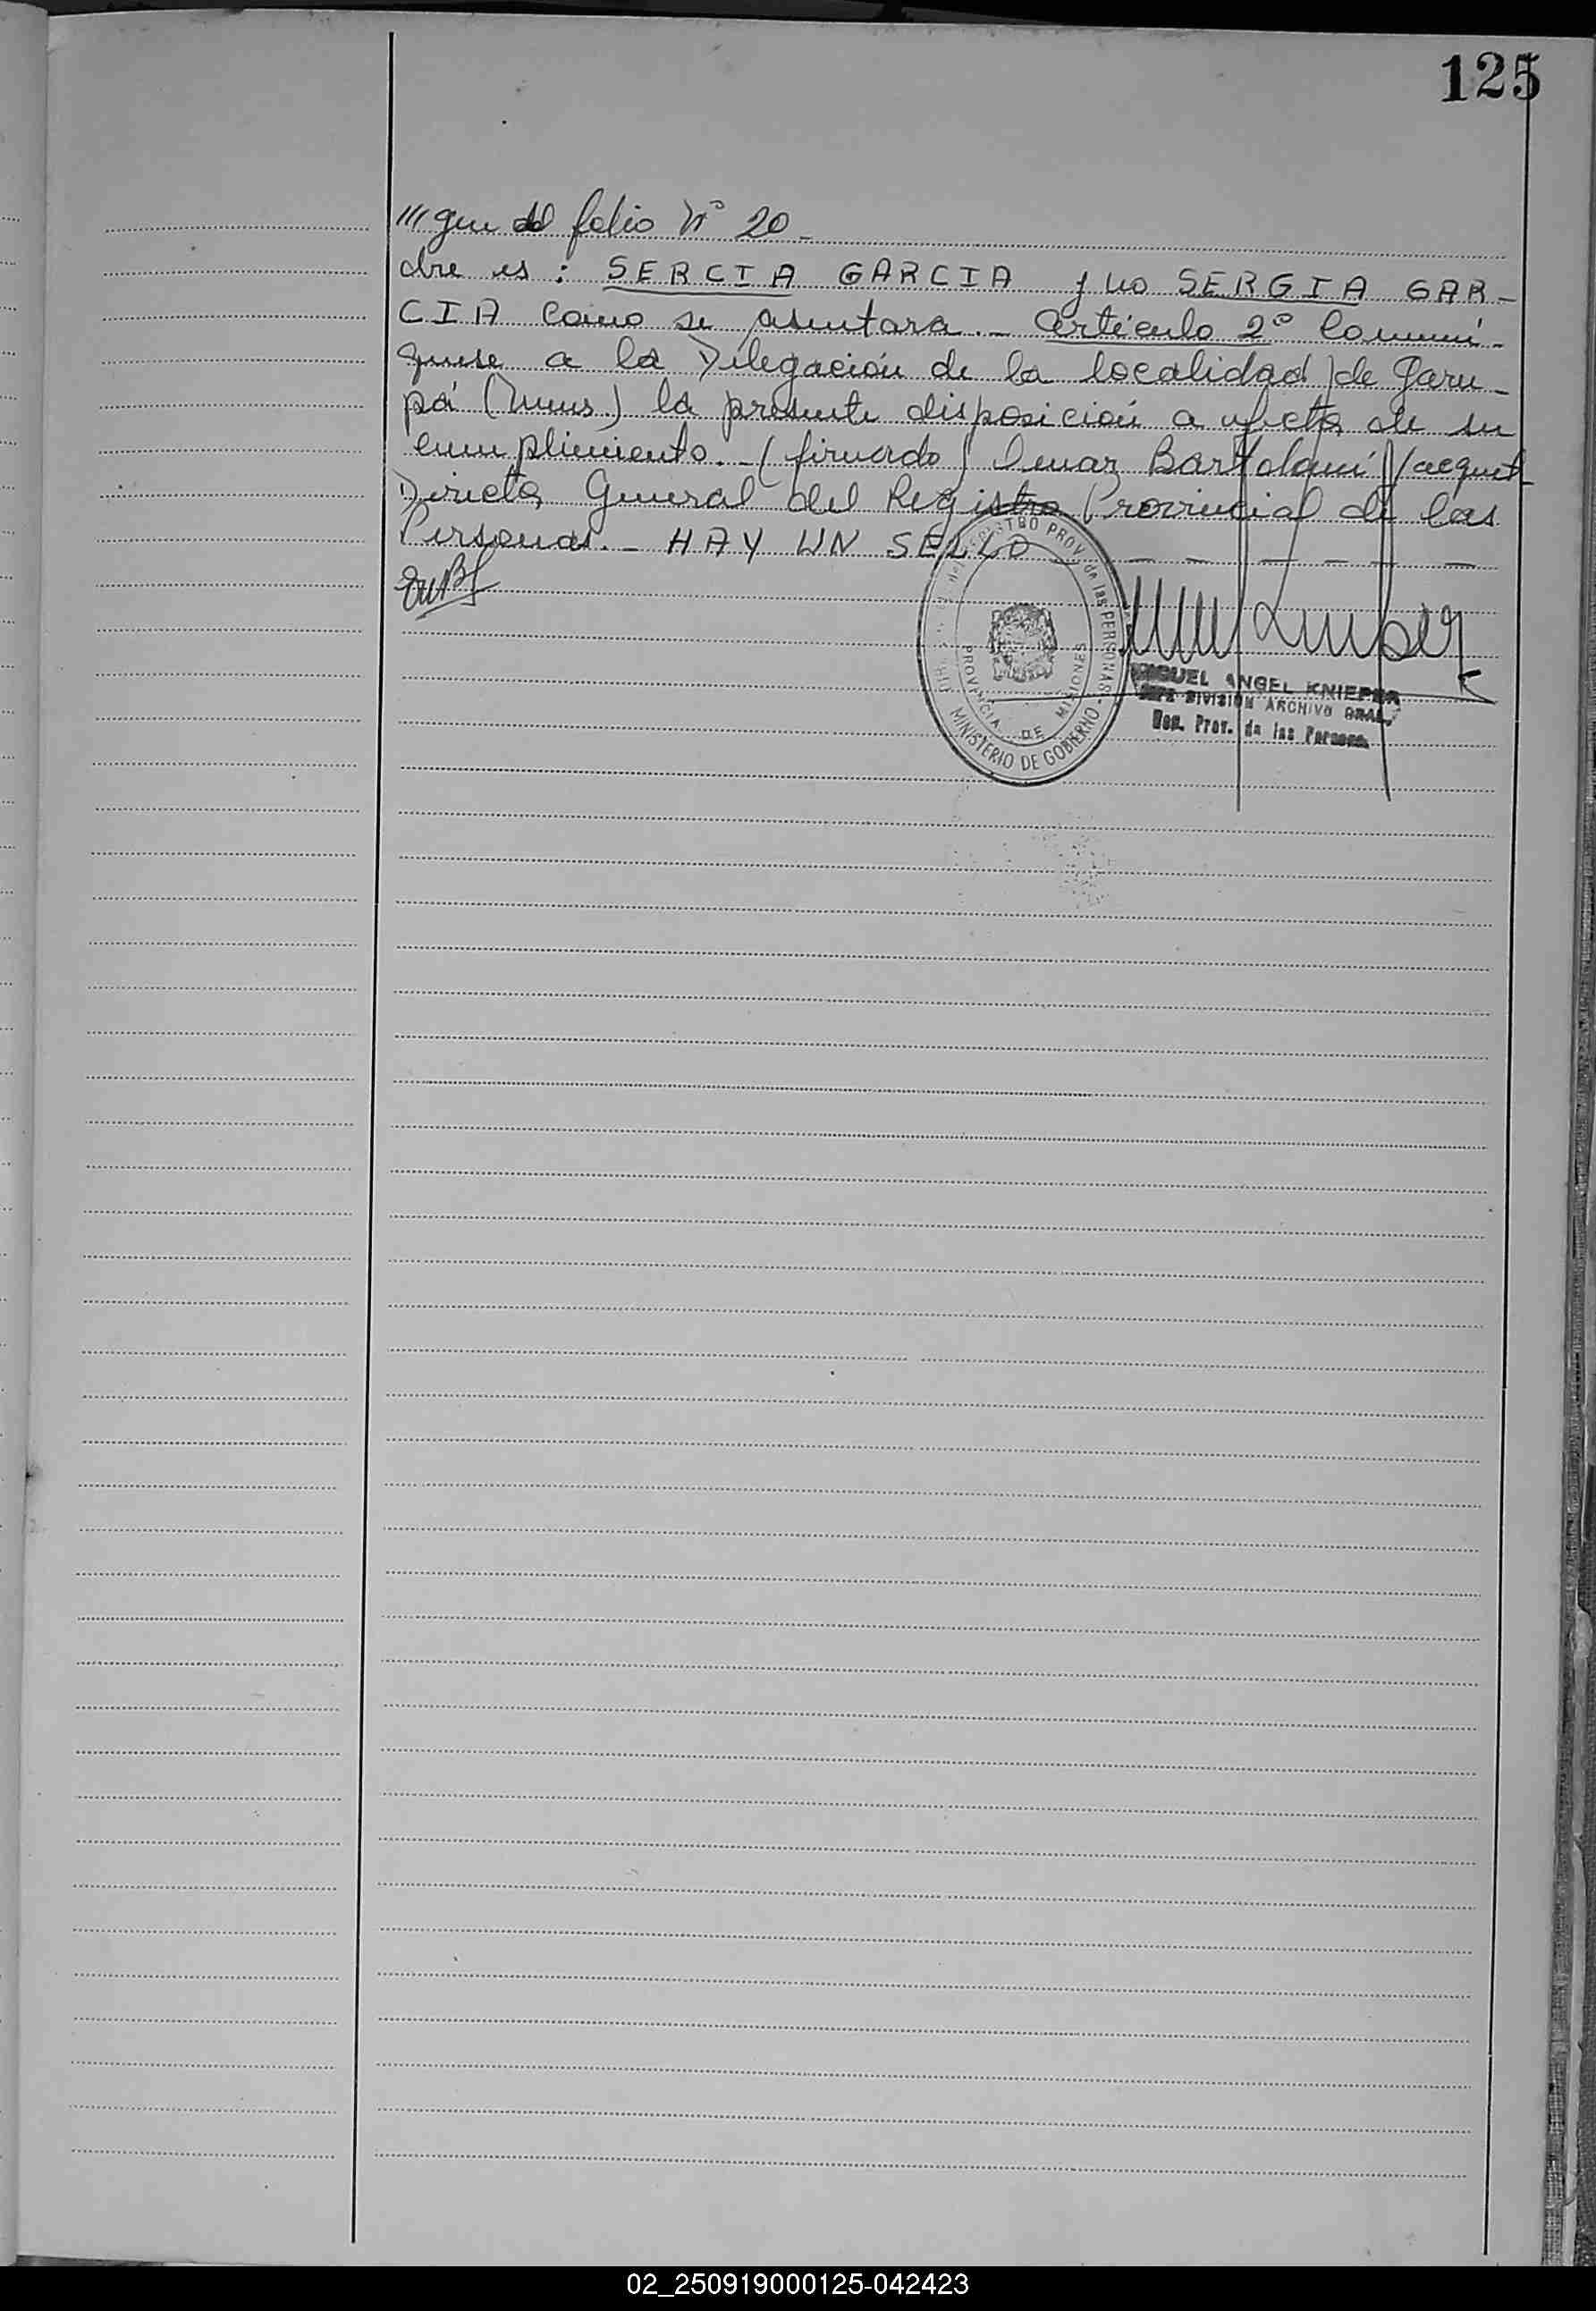 125
/// gue del folio Nº 20 -
dre es: SERCIA GARCIA y no SERGIA GAR-
CIA como se asentara.- Artículo 2º Comuní-
quese a la Delegación de la localidad de Garu-
pá (Mnes.) la presente disposición a efectos de su
cumplimiento.- (firmado) Omar Bartolomé Jacquet
Director General del Registro Provincial de las
Personas.- HAY UN SELLO — — — — — —
REGISTRO PROV. de las PERSONAS
PROVINCIA DE MISIONES
MINISTERIO DE GOBIERNO
MIGUEL ANGEL KNIEPER
JEFE DIVISION ARCHIVO GRAL.
Prov. de las
02_250919000125-042423